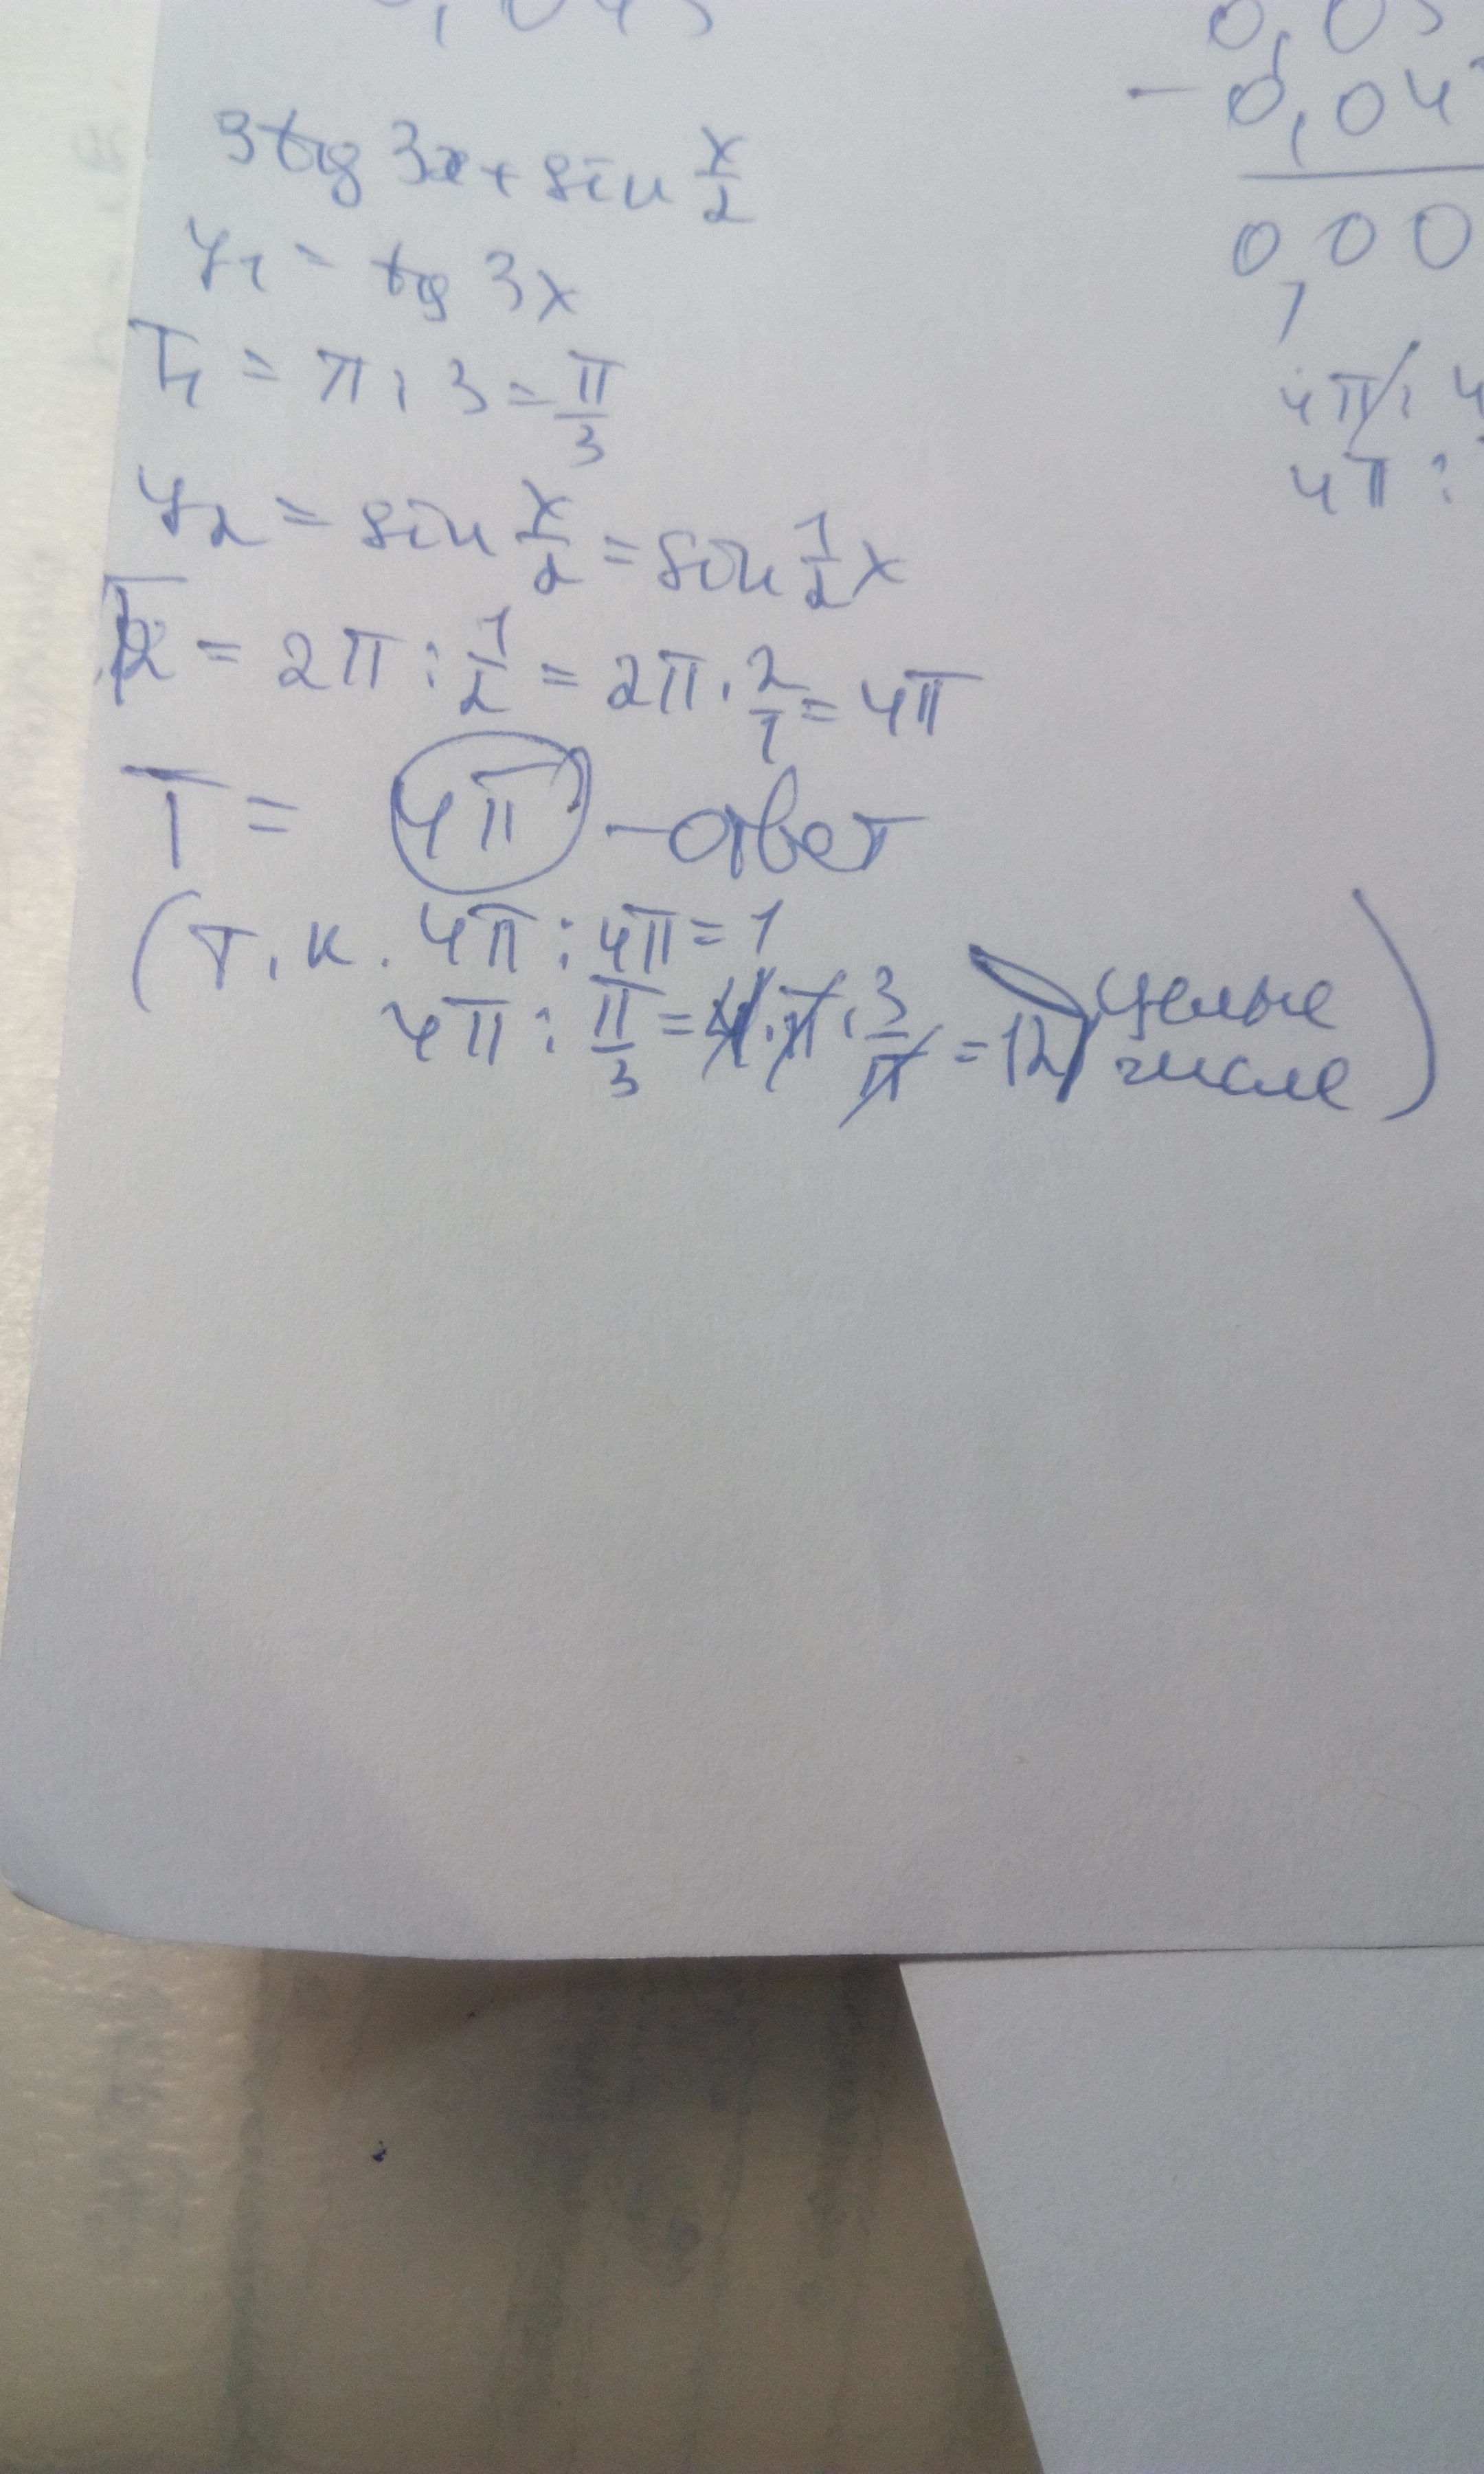 3tg 3x + sin x/2
y₁ = tg 3x
T₁ = π : 3 = π/3
y₂ = sin x/2 = sin 1/2 x
T₂ = 2π : 1/2 = 2π · 2/1 = 4π
T = 4π - ответ
(т.к. 4π : 4π = 1
4π : π/3 = 4 · π · 3/π = 12 целые числа)
- 0,04
0,00
4π : 4
4π :